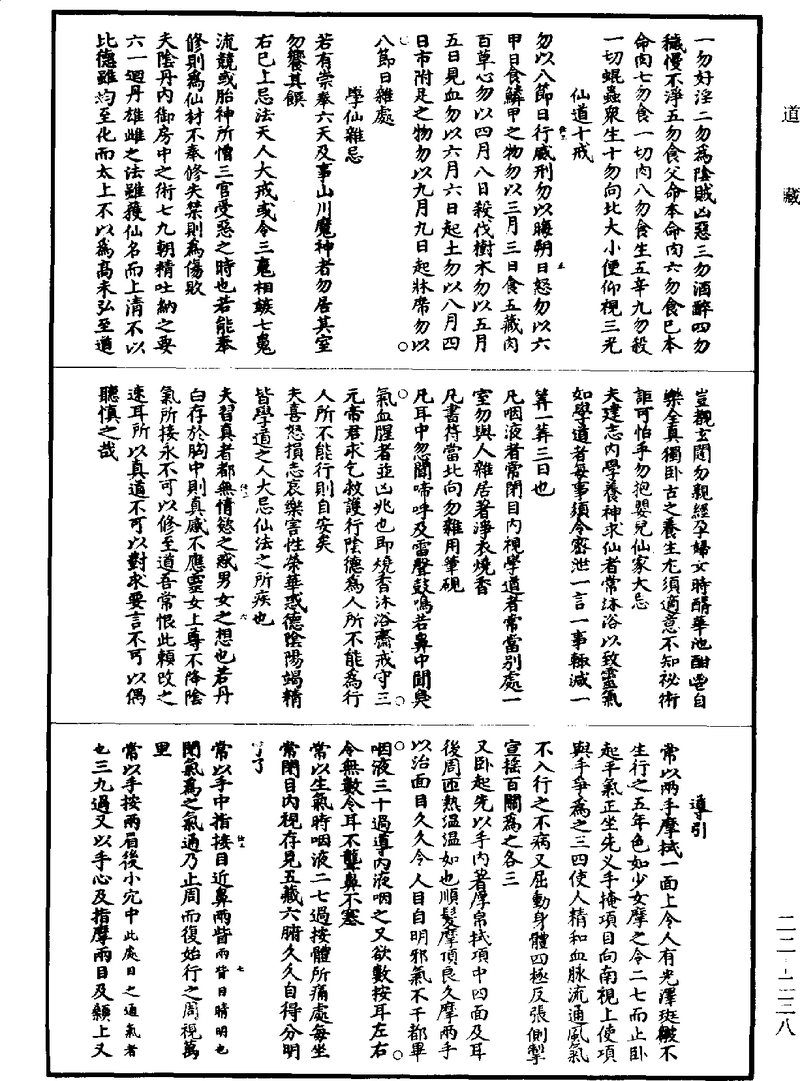 道藏
一勿好淫二勿為陰賊凶惡三勿酒醉四勿
穢慢不淨五勿食父命本命肉六勿食己本
命肉七勿食一切肉八勿食生五辛九勿殺
一切蜫蟲眾生十勿向北大小便仰視三光
仙道十戒
勿以八節日行威刑勿以晦朔日怒勿以六
甲日食鱗甲之物勿以三月三日食五藏肉
百草心勿以四月八日殺伐樹木勿以五月
五日見血勿以六月六日起土勿以八月四
日市附足之物勿以九月九日起牀帶勿以
八節日雜處
學仙雜忌
若有崇奉六天及事山川魔神者勿居其室
勿饗其饌
右已上忌法天人大戒或令三䰟相嫉七䰟
流競或胎神所憎三官受惡之時也若能奉
修則為仙材不奉修失禁則為傷敗
夫陰丹內御房中之術七九朝精吐納之要
六一迴丹雄雌之法雖獲仙名而上清不以
比德雖均至化而太上不以為高未弘至道
豈覩玄閎勿親經孕婦女時醑華池酣𠷠自
樂全真獨臥古之養生尤須適意不知祕術
詎可怕乎勿抱嬰兒仙家大忌
夫建志內學養神求仙者常沐浴以致靈氣
如學道者每事須令密泄一言一事輒減一
筭一筭三日也
凡咽液者常閉目內視學道者常當別處一
室勿與人雜居著淨衣燒香
凡書符當北向勿雜用筆硯
凡耳中忽聞啼呼及雷聲鼓鳴若鼻中聞臭
氣血腥者並凶兆也即燒香沐浴齋戒守三
元帝君求乞救護行陰德為人所不能為行
人所不能行則自安矣
夫喜怒損志哀樂害性榮華惑德陰陽竭精
皆學道之人大忌仙法之所疾也
夫習真者都無情慾之惑男女之想也若丹
白存於胸中則真感不應靈女上尊不降陰
氣所接永不可以修至道吾常恨此賴改之
速耳所以真道不可以對求要言不可以偶
聽慎之哉
導引
常以兩手摩拭一面上令人有光澤斑皺不
生行之五年色如少女摩之令二七而止臥
起平氣正坐先叉手掩項目向南視上使項
與手爭為之三四使人精和血脉流通風氣
不入行之不病又屈動身體四極反張側掣
宣搖百關為之各三
又臥起先以手內著厚帛拭項中四面及耳
後周匝熱溫溫如也順髮摩頂良久摩兩手
以治面目久久令人目自明邪氣不干都畢
咽液三十過導內液咽之又欲數按耳左右
令無數令耳不聾鼻不塞
常以生氣時咽液二七過按體所痛處每坐
常閉目內視存見五藏六腑久久自得分明
了了
常以手中指接目近鼻兩眥兩眥目睛明也
閉氣為之氣通乃止周而復始行之周視萬
里
常以手按兩眉後小穴中此處目之通氣者
也三九過又以手心及指摩兩目及顙上又
二二-二三八